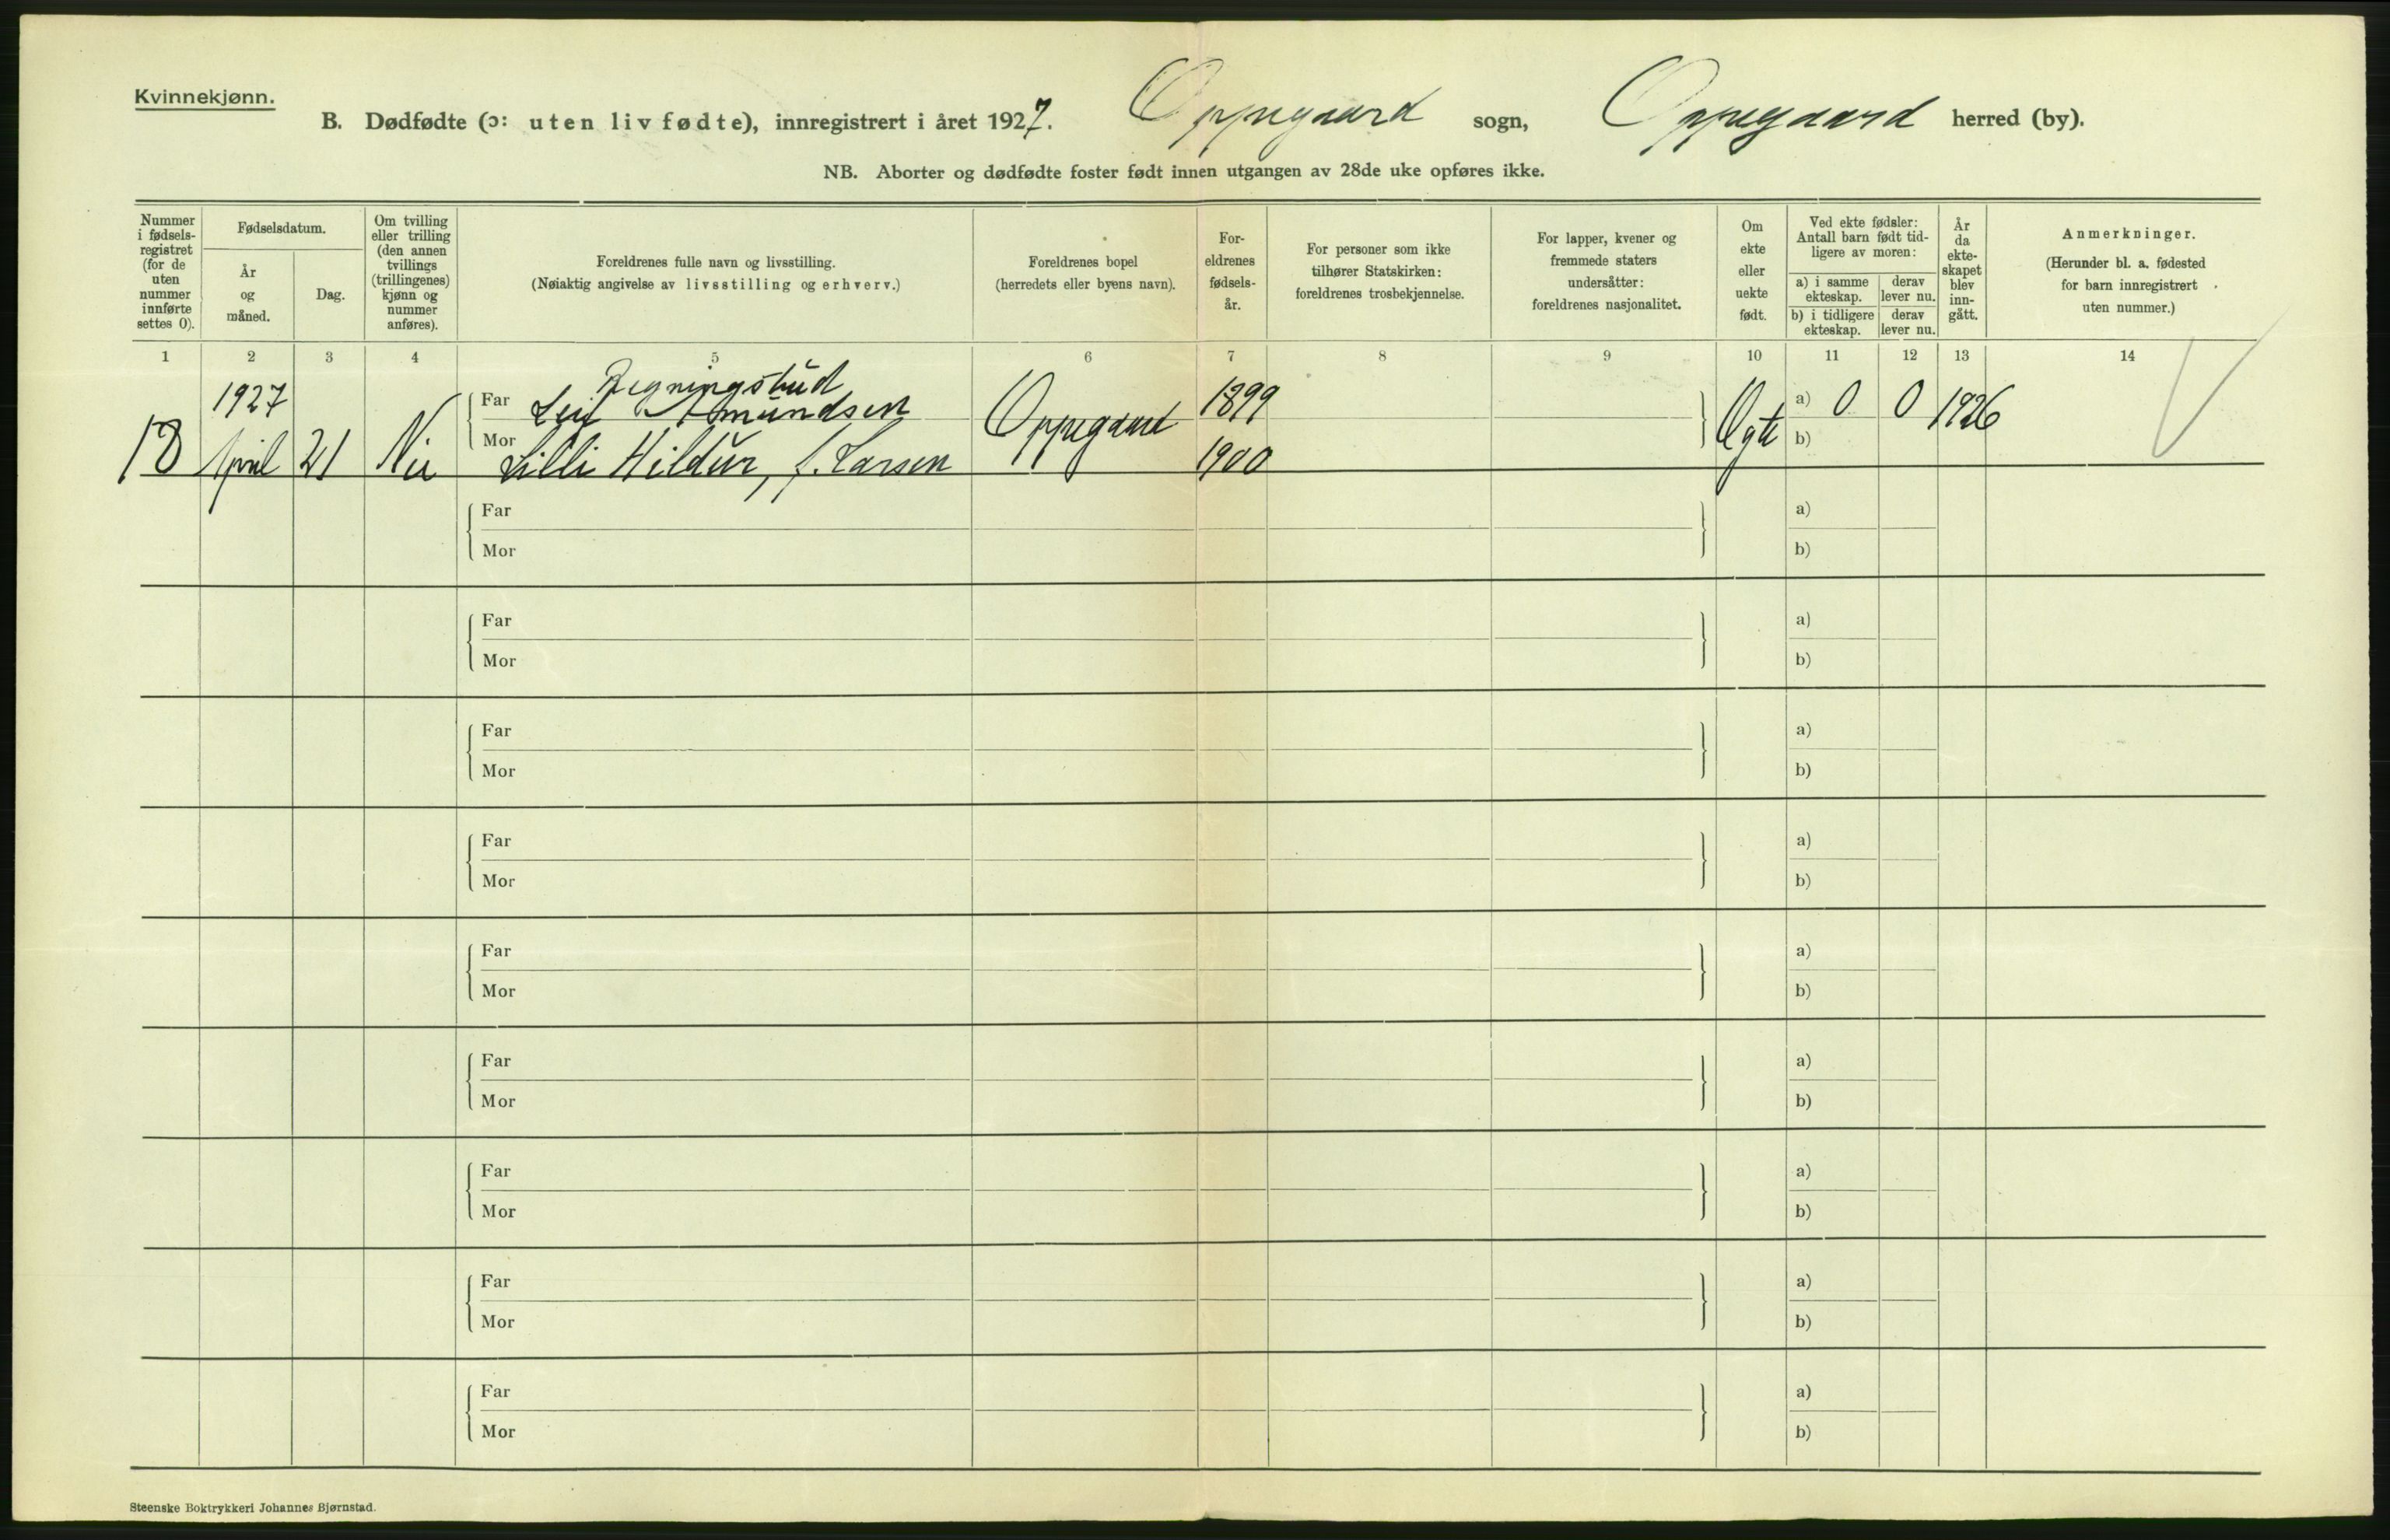 Kvinnekjønn.
B. Dødfødte (ɔ: uten liv fødte), innregistrert i året 1927. Oppegaard sogn, Oppegaard herred (by).
NB. Aborter og dødfødte foster født innen utgangen av 28de uke opføres ikke.
Nummer i fødsels-registret (for de uten nummer innførte settes 0).
Fødselsdatum.
År og måned.
Dag.
Om tvilling eller trilling (den annen tvillings (trillingenes) kjønn og nummer anføres).
Foreldrenes fulle navn og livsstilling.
(Nøiaktig angivelse av livsstilling og erhverv.)
Foreldrenes bopel
(herredets eller byens navn).
For-eldrenes fødsels-år.
For personer som ikke tilhører Statskirken: foreldrenes trosbekjennelse.
For lapper, kvener og fremmede staters undersåtter: foreldrenes nasjonalitet.
Om ekte eller uekte født.
Ved ekte fødsler: Antall barn født tid-ligere av moren:
a) i samme ekteskap.
derav lever nu.
b) i tidligere ekteskap.
derav lever nu.
År da ekte-skapet blev inn-gått.
Anmerkninger.
(Herunder bl. a. fødested for barn innregistrert uten nummer.)
1 2 3 4 5 6 7 8 9 10 11 12 13 14
1927 Far Regningsbud
Leif Amundsen 1899 a) 0 0 1926
18 April 21 Nei Mor Lilli Hildur, f. Larsen Oppegaard 1900 Egte b)
Far a)
Mor b)
Far a)
Mor b)
Far a)
Mor b)
Far a)
Mor b)
Far a)
Mor b)
Far a)
Mor b)
Far a)
Mor b)
Far a)
Mor b)
Far a)
Mor b)
Steenske Boktrykkeri Johannes Bjørnstad.